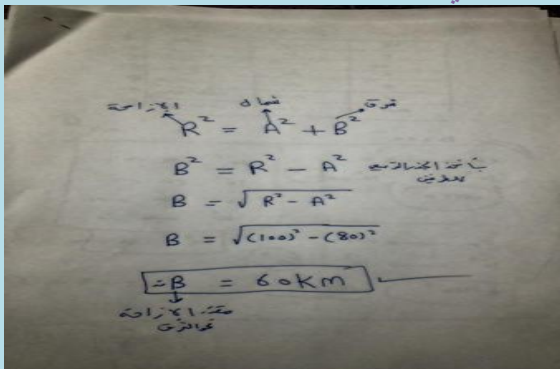 الإزاحة شمال شرق
R² = A² + B²
B² = R² - A² بأخذ الجذر التربيعي للطرفين
B = √R² - A²
B = √(100)² - (80)²
∴B = 60Km
الإزاحة